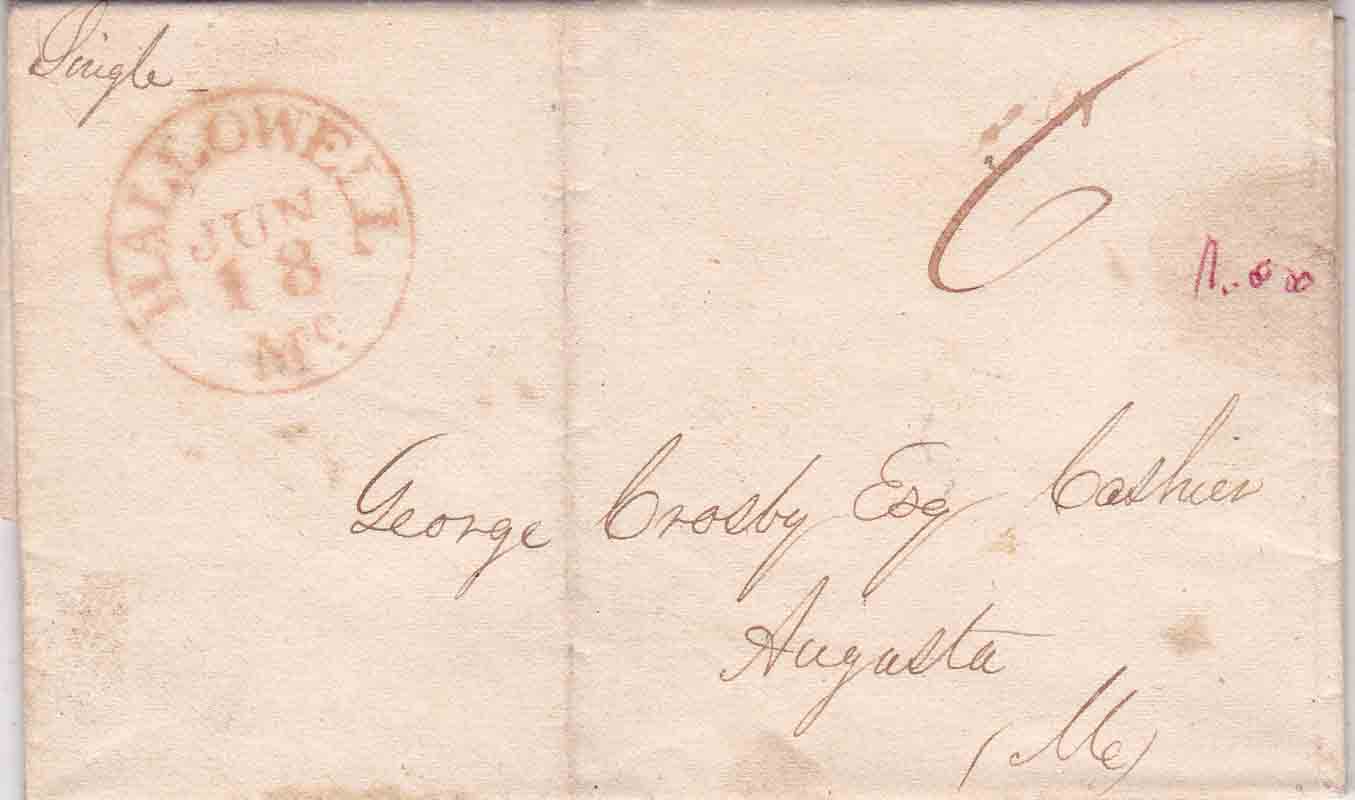 Single
HALLOWELL
JUN
18
Me
6
George Crosby Esq Cashier
Augusta
(Me)